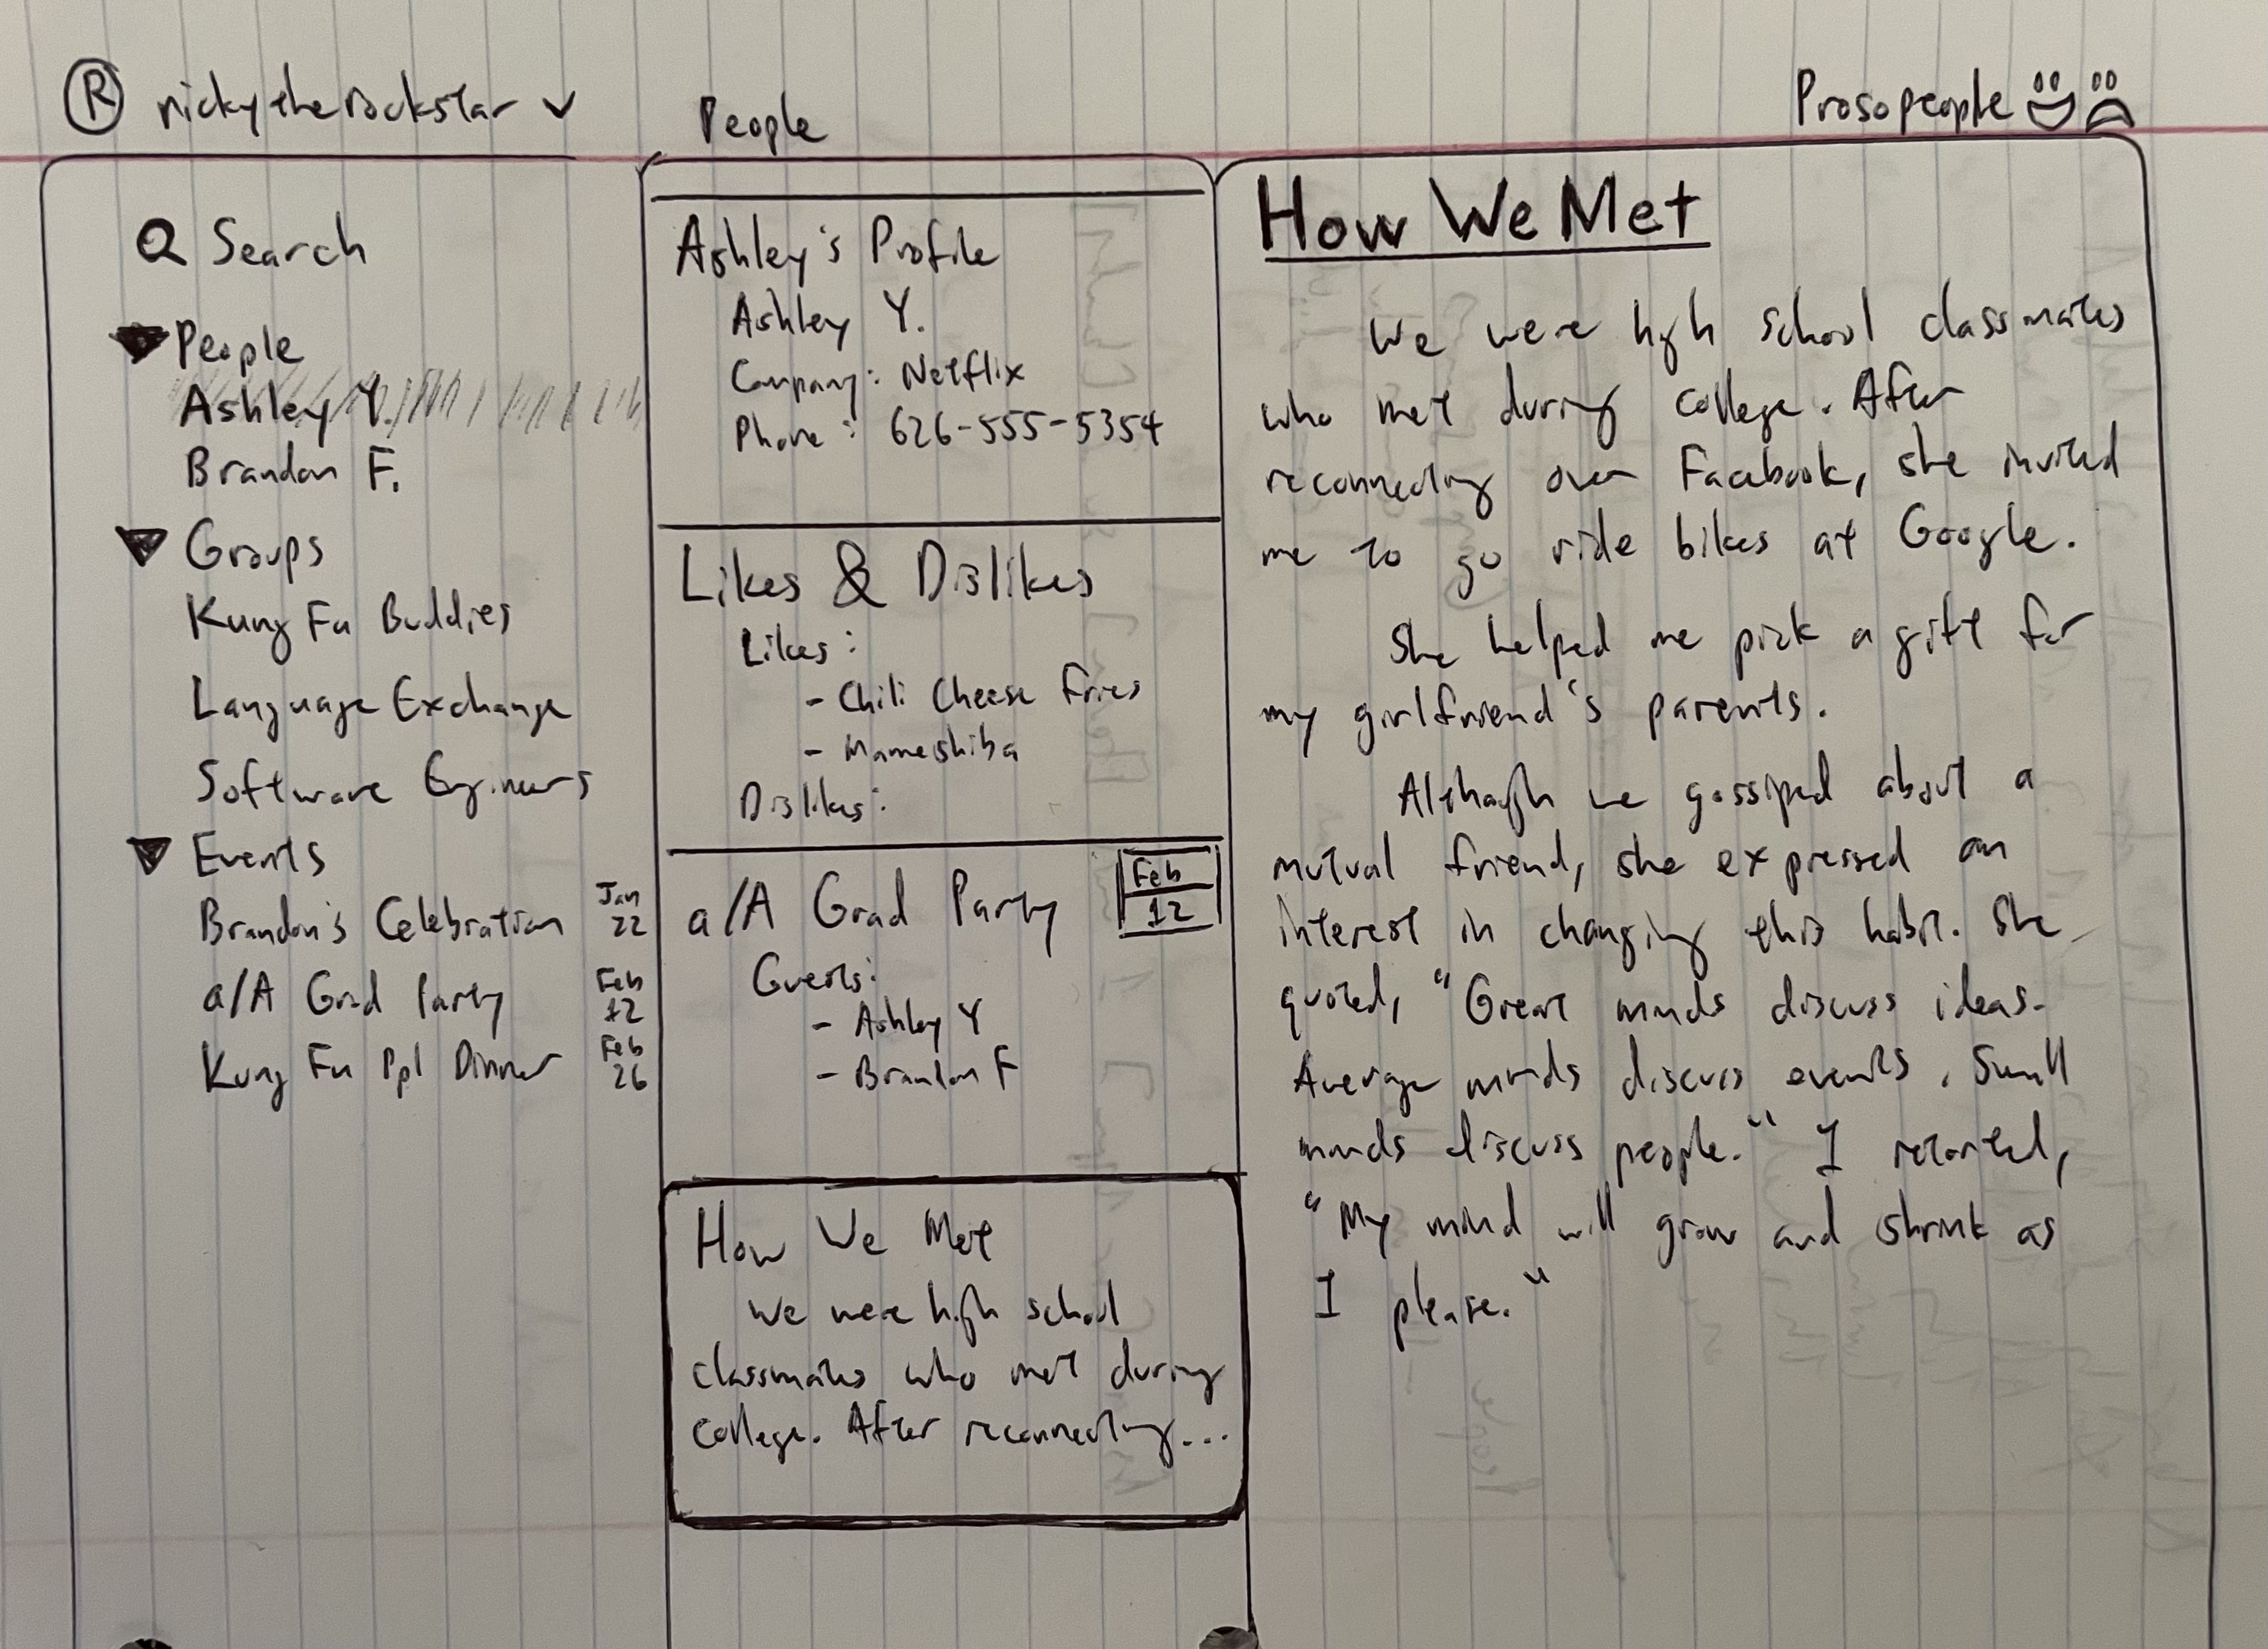 R nickytherockstar
People
Prosopeople
Search
People
Ashley Y.
Brandon F.
Groups
Kung Fu Buddies
Language Exchange
Software Engineers
Events
Brandon's Celebration Jan 22
a/A Grad Party Feb 12
Kung Fu Ppl Dinner Feb 26
Ashley's Profile
Ashley Y.
Company: Netflix
Phone: 626-555-5354
Likes & Dislikes
Likes:
- Chili Cheese Fries
- Mameshiba
Dislikes:
a/A Grad Party Feb 12
Guests:
- Ashley Y
- Brandon F
How We Met
We were high school
classmates who met during
college. After reconnecting...
How We Met
We were high school classmates
who met during college. After
reconnecting over Facebook, she invited
me to go ride bikes at Google.
She helped me pick a gift for
my girlfriend's parents.
Although we gossiped about a
mutual friend, she expressed an
interest in changing this habit. She
quoted, "Great minds discuss ideas.
Average minds discuss events. Small
minds discuss people." I retorted,
"My mind will grow and shrink as
I please."